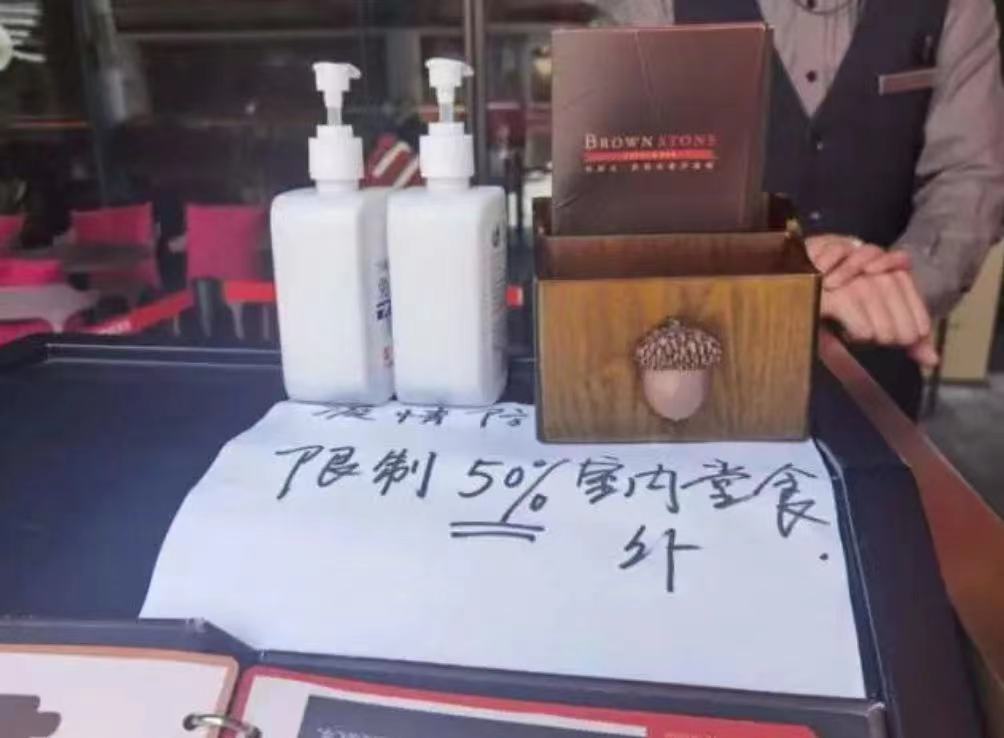 BROWNSTONE
疫情防
限制50%室内堂食
外.